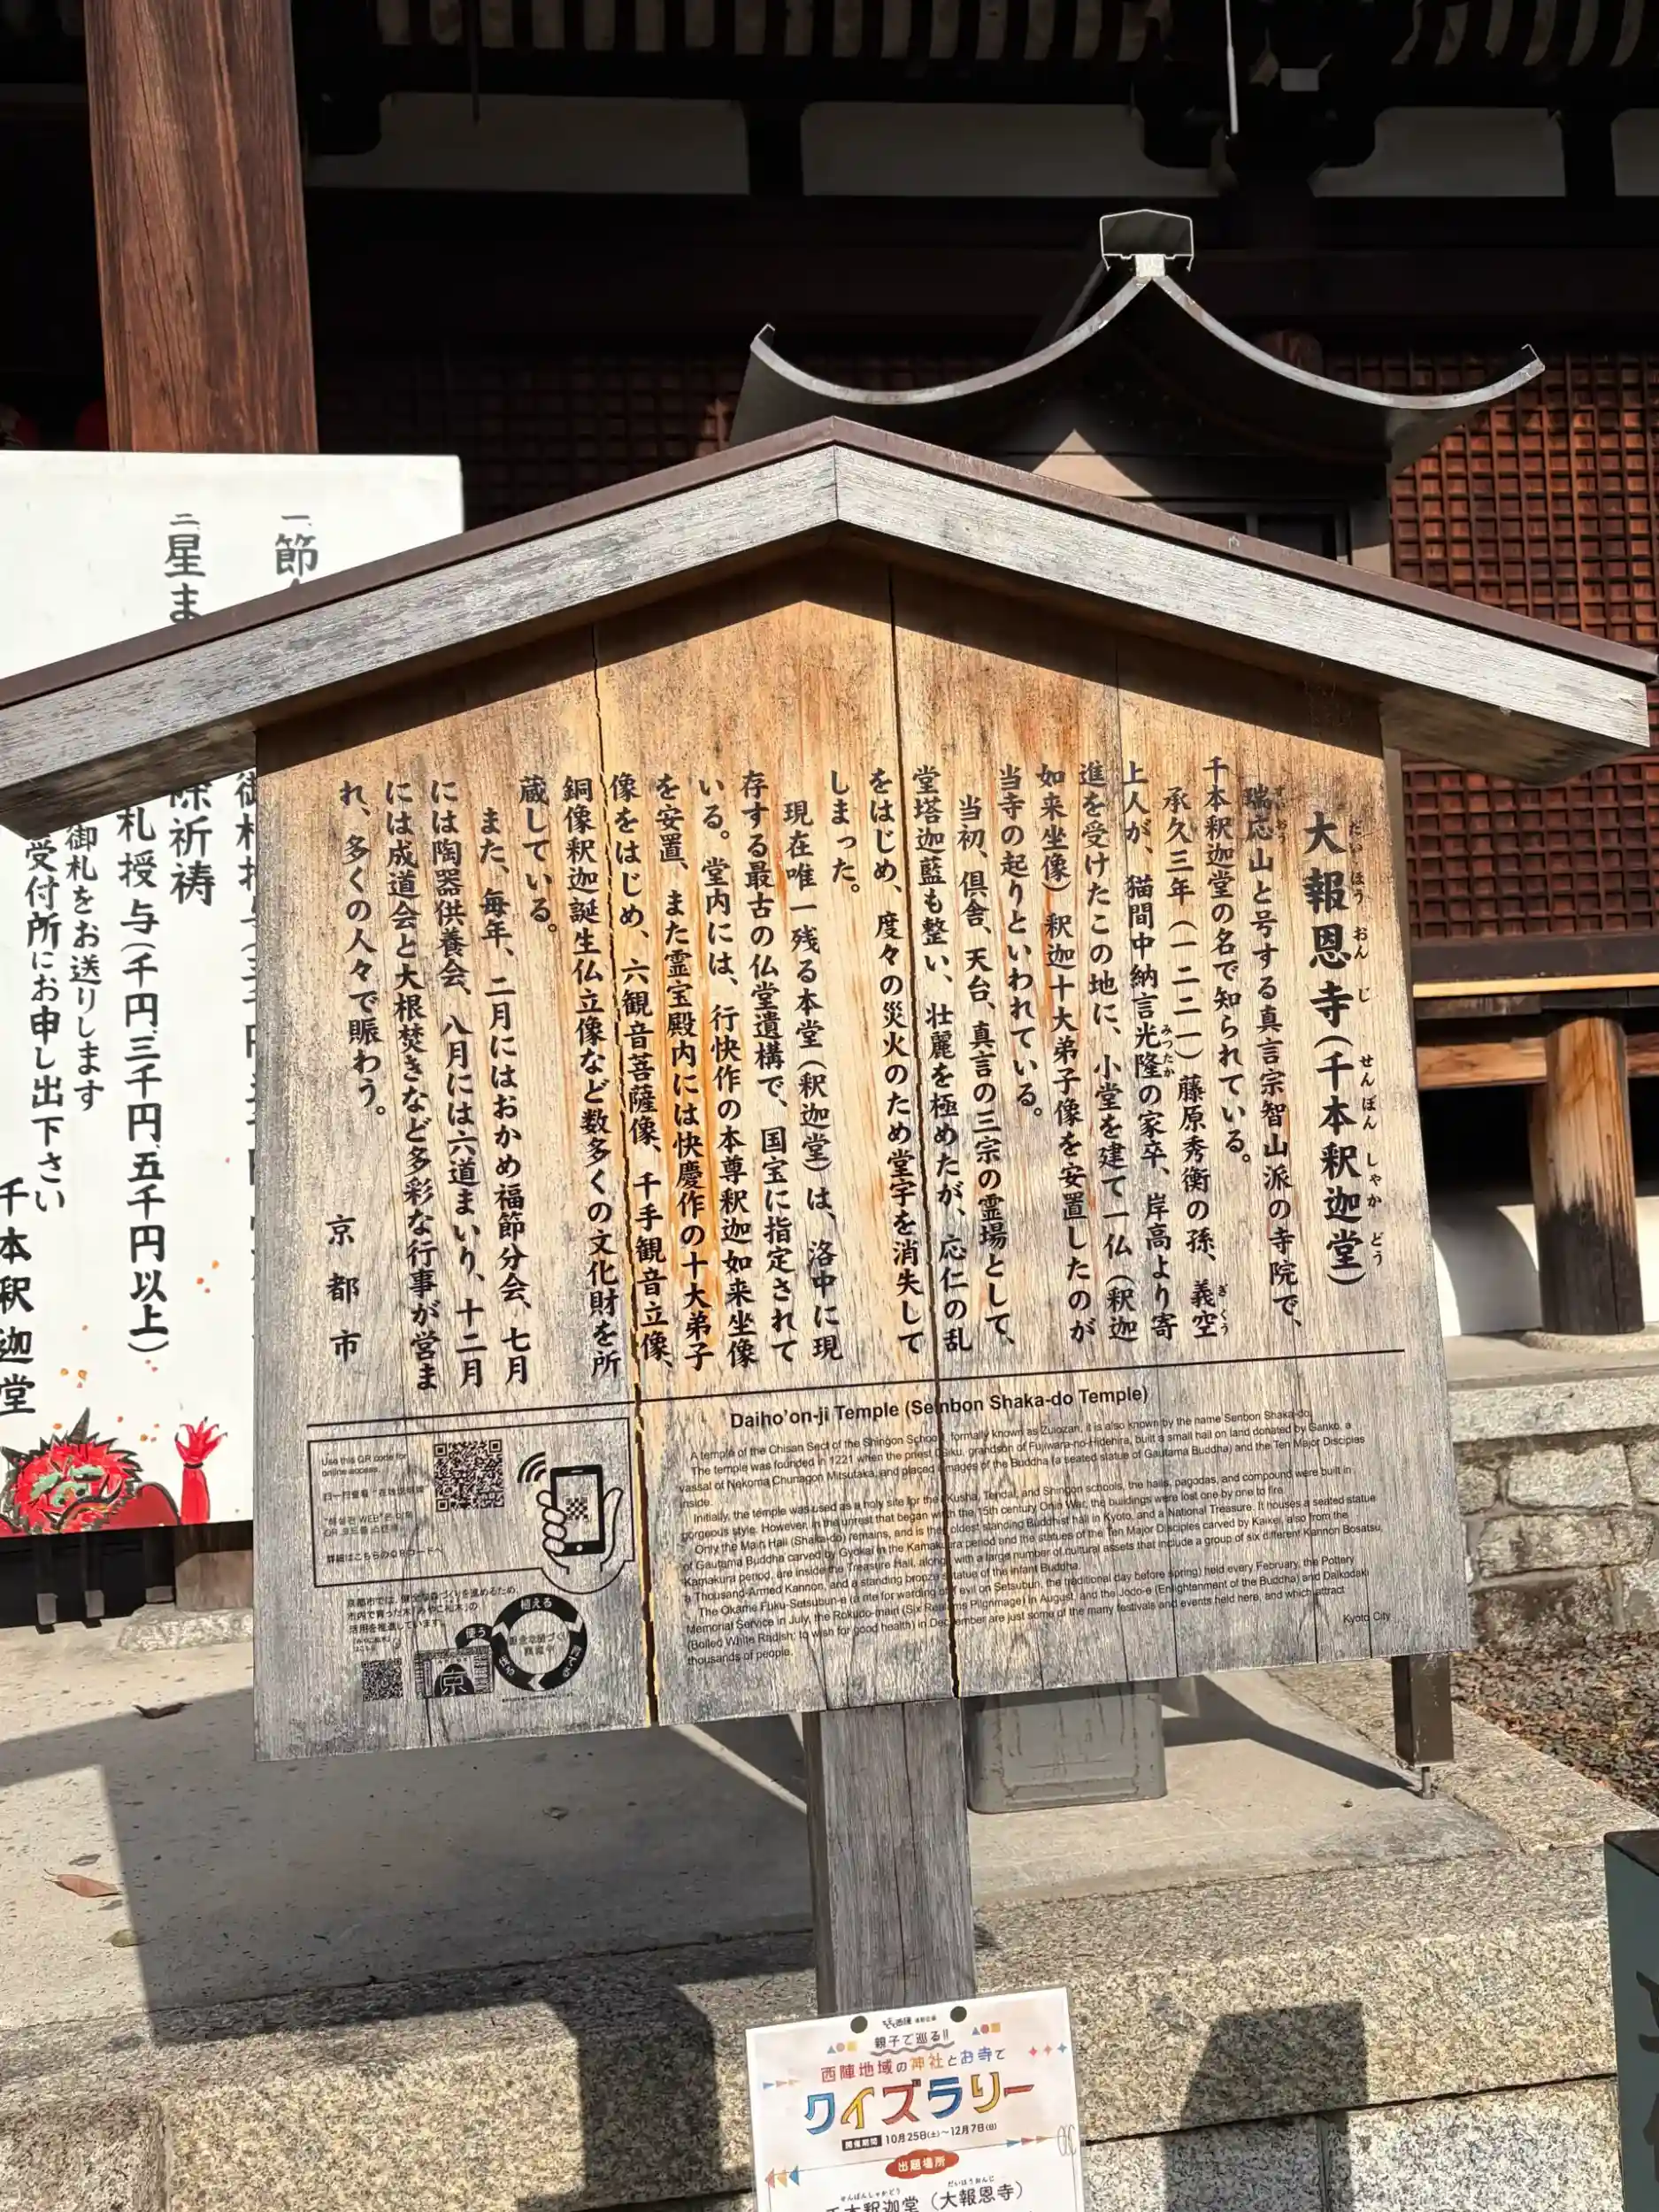 大報恩寺(千本釈迦堂)
だいほうおんじ せんぼんしゃかどう
瑞応山と号する真言宗智山派の寺院で、
ずいおう
千本釈迦堂の名で知られている。
承久三年(一二二一)藤原秀衡の孫、義空
ぎくう
上人が、猫間中納言光隆の家卒、岸高より寄
みつたか
進を受けたこの地に、小堂を建て一仏(釈迦
如来坐像)釈迦十大弟子像を安置したのが
当寺の起りといわれている。
当初、倶舎、天台、真言の三宗の霊場として、
堂塔迦藍も整い、壮麗を極めたが、応仁の乱
をはじめ、度々の災火のため堂宇を消失して
しまった。
現在唯一残る本堂(釈迦堂)は、洛中に現
存する最古の仏堂遺構で、国宝に指定されて
いる。堂内には、行快作の本尊釈迦如来坐像
を安置、また霊宝殿内には快慶作の十大弟子
像をはじめ、六観音菩薩像、千手観音立像、
銅像釈迦誕生仏立像など数多くの文化財を所
蔵している。
また、毎年、二月にはおかめ福節分会、七月
には陶器供養会、八月には六道まいり、十二月
には成道会と大根焚きなど多彩な行事が営ま
れ、多くの人々で賑わう。
京都市
Daiho'on-ji Temple (Senbon Shaka-do Temple)
A temple of the Chisan Sect of the Shingon School, formally known as Zuiozan, it is also known by the name Senbon Shaka-do.
The temple was founded in 1221 when the priest Giku, grandson of Fujiwara-no-Hidehira, built a small hall on land donated by Ganko, a
vassal of Nekoma Chunagon Mitsutaka, and placed images of the Buddha (a seated statue of Gautama Buddha) and the Ten Major Disciples
inside.
Initially, the temple was used as a holy site for the Kusha, Tendai, and Shingon schools, the halls, pagodas, and compound were built in
gorgeous style. However, in the unrest that began with the 15th century Onin War, the buildings were lost one by one to fire.
Only the Main Hall (Shaka-do) remains, and is the oldest standing Buddhist hall in Kyoto, and a National Treasure. It houses a seated statue
of Gautama Buddha carved by Gyokai in the Kamakura period and the statues of the Ten Major Disciples carved by Kaikei, also from the
Kamakura period, are inside the Treasure Hall, along with a large number of cultural assets that include a group of six different Kannon Bosatsu,
a Thousand-Armed Kannon, and a standing bronze statue of the infant Buddha.
The Okame Fuku-Setsubun-e (a rite for warding off evil on Setsubun, the traditional day before spring) held every February, the Pottery
Memorial Service in July, the Rokudo-mairi (Six Realms Pilgrimage) in August, and the Jodo-e (Enlightenment of the Buddha) and Daikodaki
(Boiled White Radish; to wish for good health) in December are just some of the many festivals and events held here, and which attract
thousands of people.
Kyoto City
Use this QR code for
online access.
詳細はこちらのQRコードへ
植える
使う
京
一、節
二、星ま
除祈祷
札授与(千円、三千円、五千円以上)
御札をお送りします
受付所にお申し出下さい
千本釈迦堂
親子で巡る!!
西陣地域の神社とお寺で
クイズラリー
開催期間 10月25日(土)~12月7日(日)
出題場所
せんぼんしゃかどう だいほうおんじ
千本釈迦堂(大報恩寺)